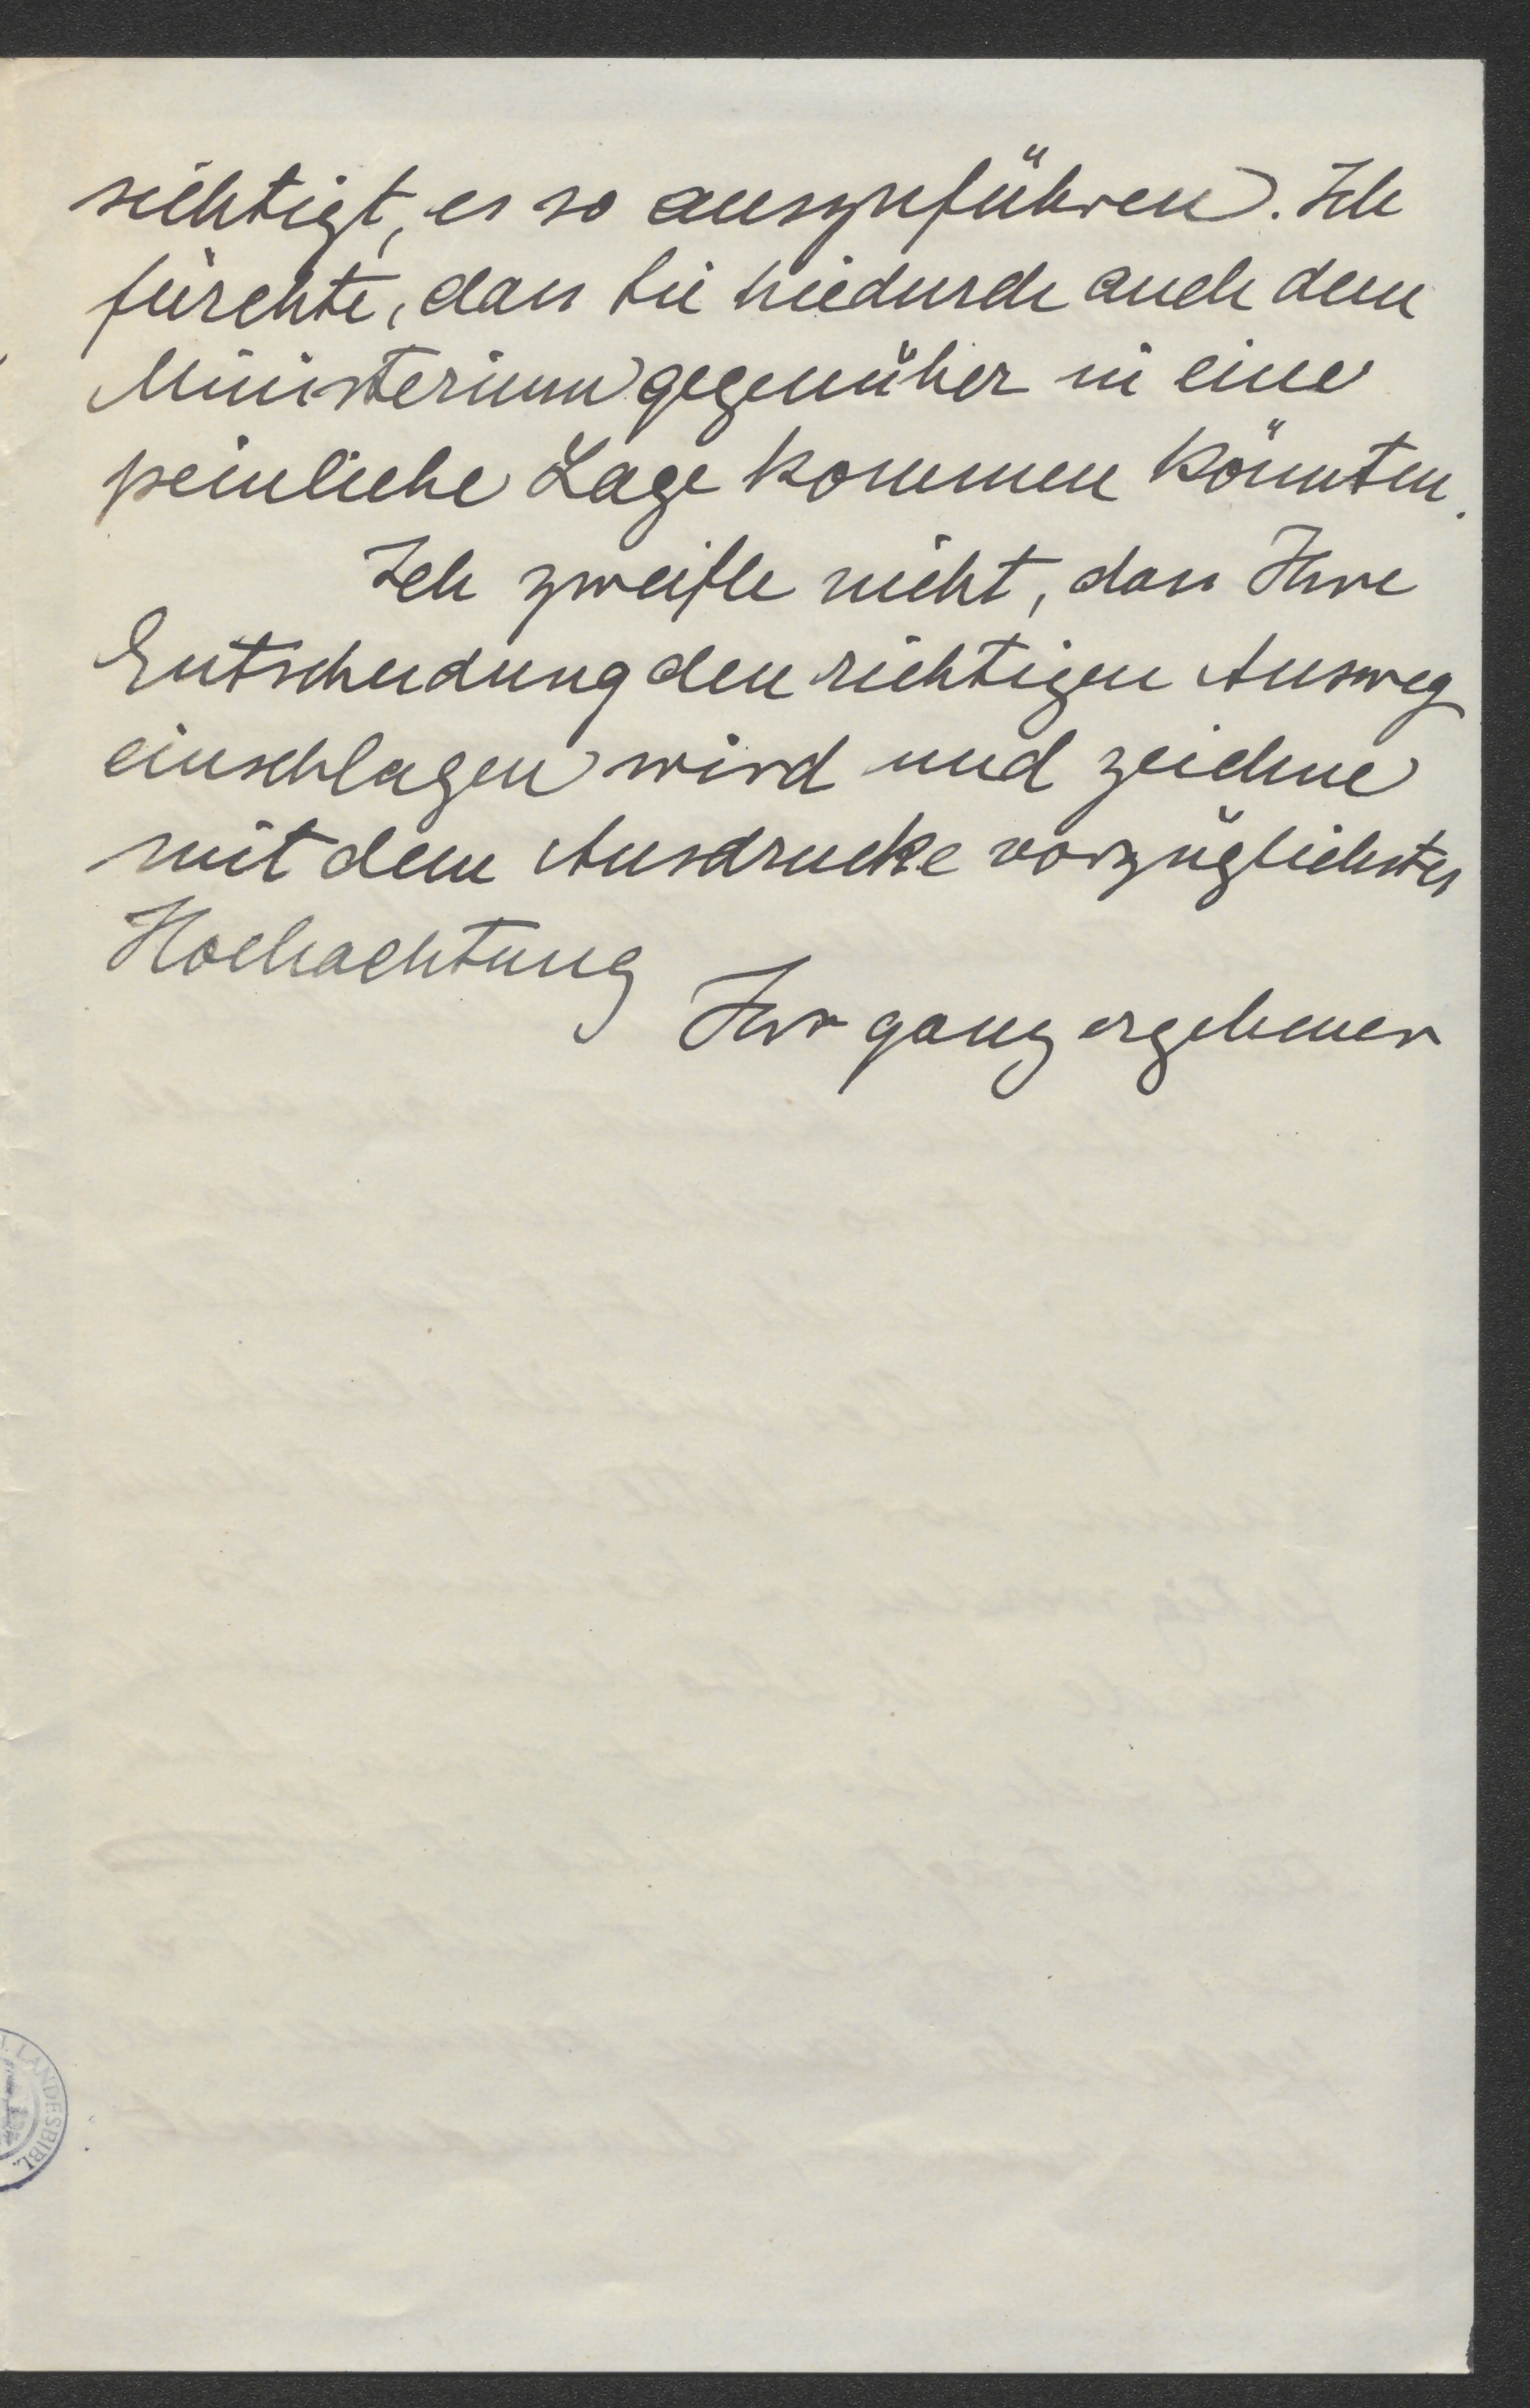 sichtigt, es so auszuführen. Ich
fürchte, dass Sie hiedurch auch dem
Ministerium gegenüber in eine
peinliche Lage kommen könnten.
Ich zweifle nicht, dass Ihre
Entscheidung den richtigen Ausweg
einschlagen wird und zeichne
mit dem Ausdrucke vorzüglichster
Hochachtung
Ihr ganz ergebener
LANDESBIBL.